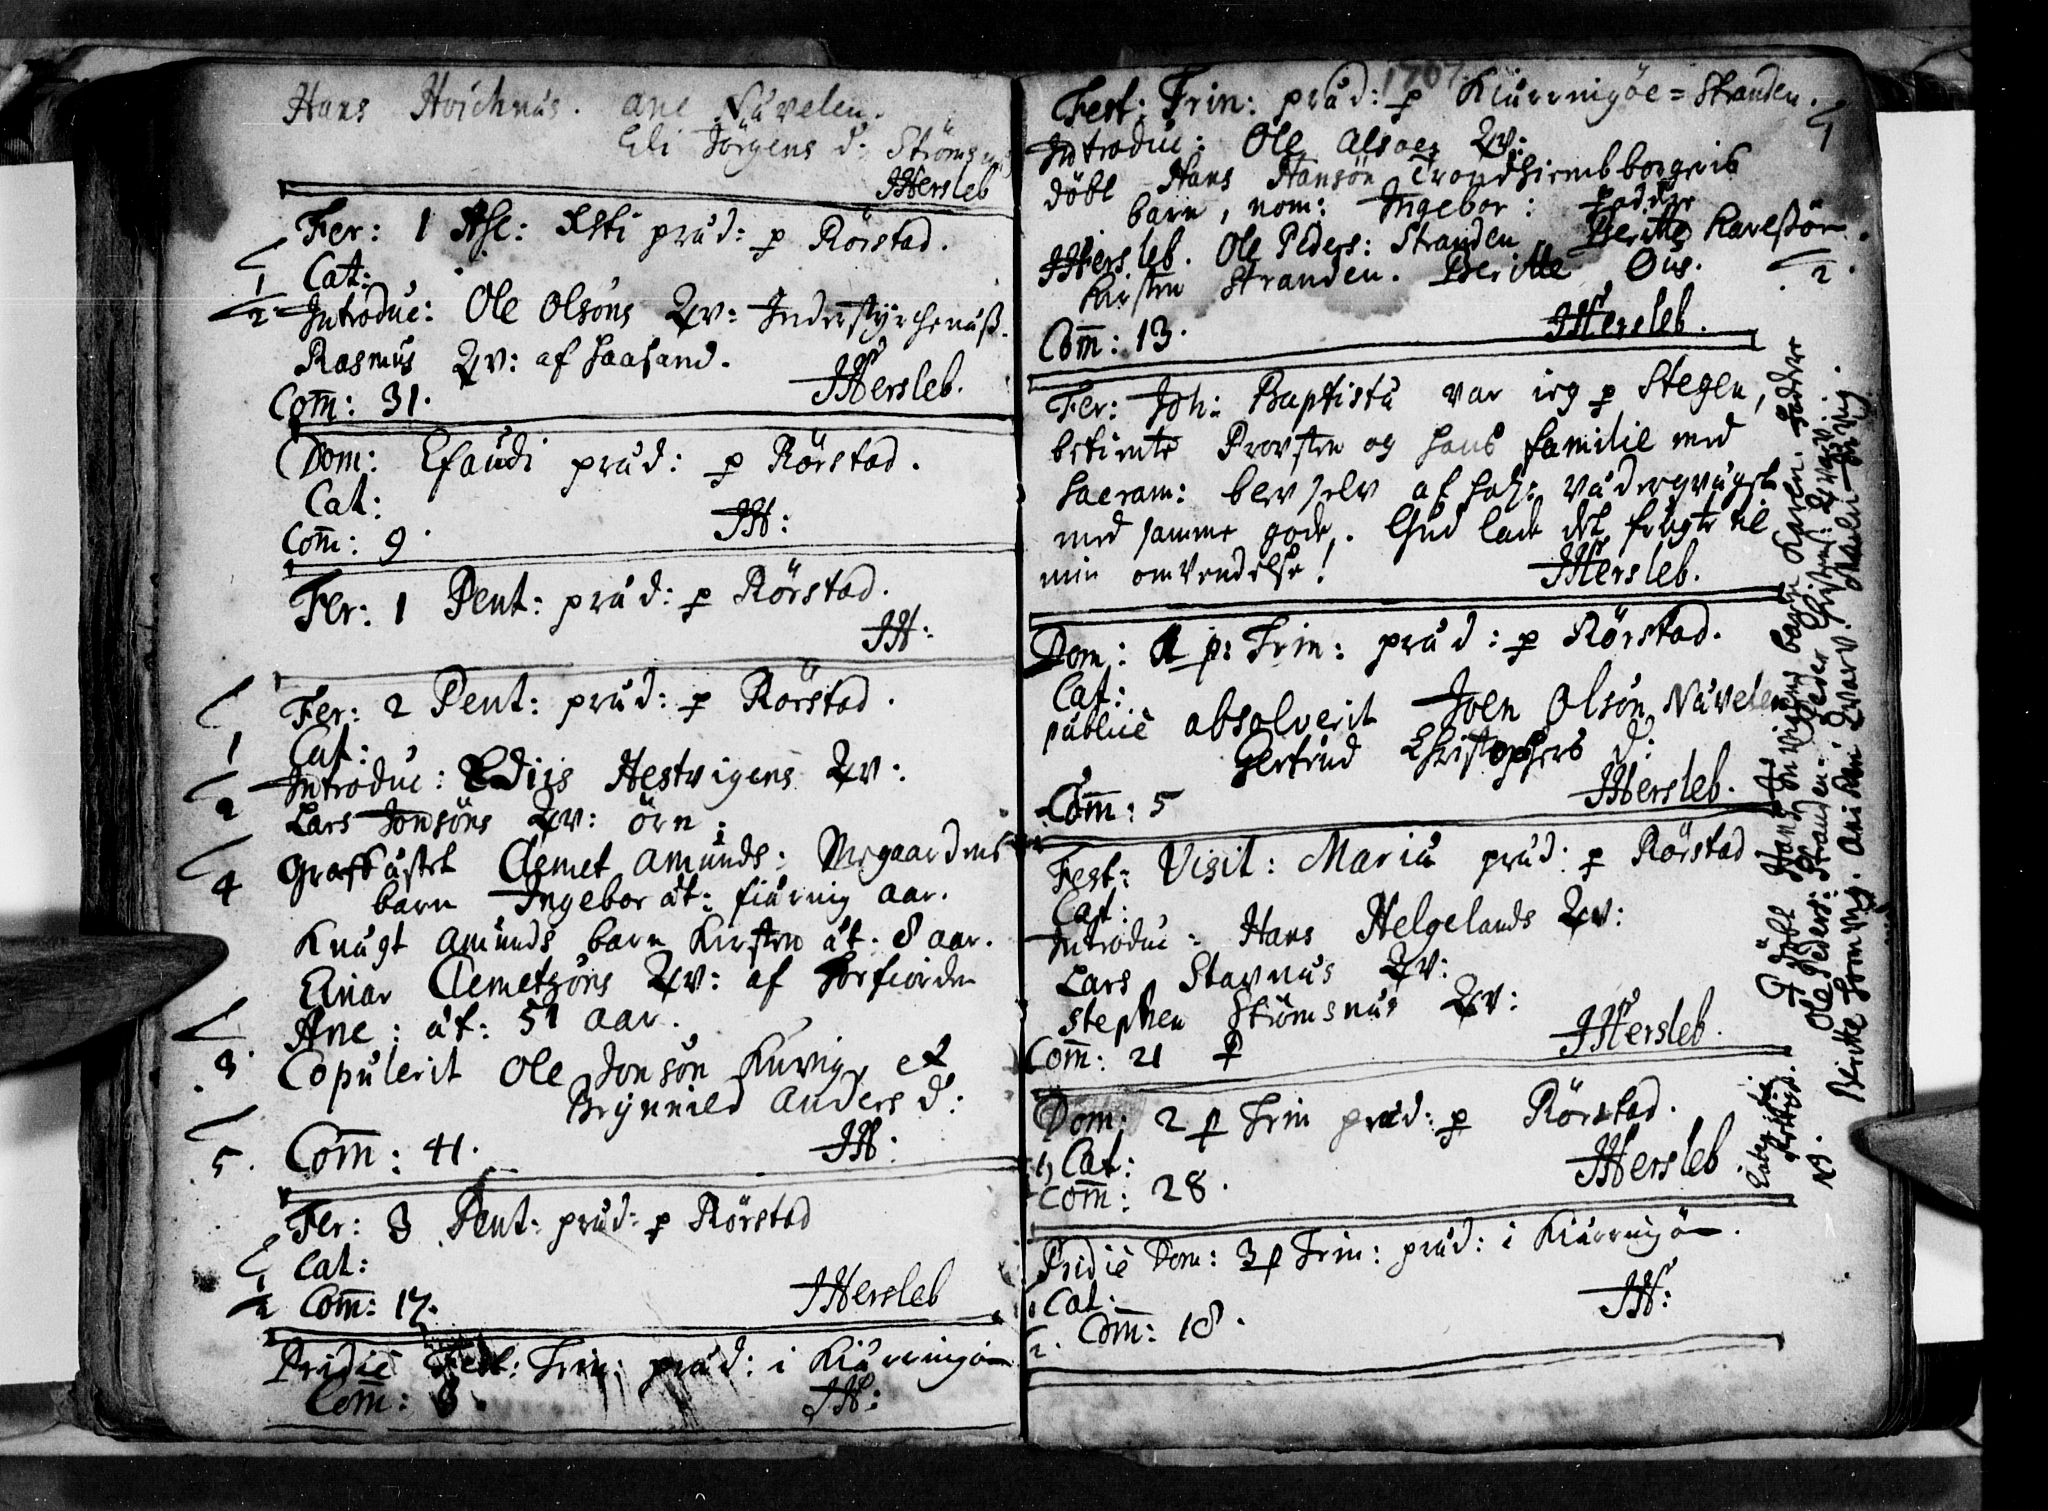 Hans Hoichnæs. ane Nævelen.
Eli Jörgens d: Strömsnæs
JHersleb
Fer: 1 Asc: Xsti præd: p Rörstad.
1 Cat:
2 Introduc: Ole Olsöns Qv: Inderstyrchenæss.
Rasmus Qv: af haasand.
Com̄: 31.
JHersleb.
Dom: Exaudi præd: p Rörstad.
Cat:
Com̄: 9.
JH:
Fer: 1 Pent: præd: p Rörstad.
JH:
Fer: 2 Pent: præd: p Rörstad.
1 Cat:
2 Introduc: Ediis Hestvigens Qv:
Lars Jonsöns Qv: örn:
4 Grafkastet Clemet Amunds: Megaardens
barn Ingebor æt: fiürrig aar.
Knugt Amunds barn Kirsten æt. 8 aar.
Einar Clemetzöns Qv: af Horfiorden
Ane: æt: 51 aar.
3. Copulerit Ole Jonsön Kurvig, et
Brynnild Anders d:
5. Com̄: 41.
JH:
Fer: 3 Pent: præd: p Rörstad
1 Cat:
2 Com̄: 17.
JHersleb
Pridie Fest: Trin: præd: i Kiærringöe
Com̄: 8.
JH:
1707
Fest: Trin: præd: p Kiærringöe = Stranden.
1 Introduc: Ole Alsoes Qv:
döbt Hans Hansön Trondhiembs borgeris
barn, nom: Ingebor: Faddre
JHersleb. Ole Peders: Stranden Beritte Karlsön
Kirsten Stranden. Beritte Ous. 2.
Com̄: 13.
JHersleb.
Fer: Joh: Baptistæ var ieg p Stegen,
betiente Provsten og hans familie med
Sacram: blev selv af ham vædergvægit
med samme gode. Gud lade det frugte til
min omvendelse!
JHersleb.
Dom: 1 p: Trin: præd: p Rörstad.
Cat:
publicè absolverit Joen Olsön Nævelen
Gertrud Christophers d:
Com̄: 5
JHersleb.
Fest: Visit: Mariæ præd: p Rörstad
Cat:
Introduc: Hans Helgelands Qv:
Lars Stavnæs Qv:
Stephen Strömsnæs Qv:
Com̄: 21
JHersleb.
Dom: 2 p Trin præd: p Rörstad.
1, Cat:
Com̄: 28.
JHersleb.
Pridiè Dom: 3 p Trin: præd: i Kiærringöe.
1 Cat:
2. Com̄: 18.
JH:
NB.
döbt Hans barn Karen. Faddre
Ole Peders: Stranden. Peder
Beritte